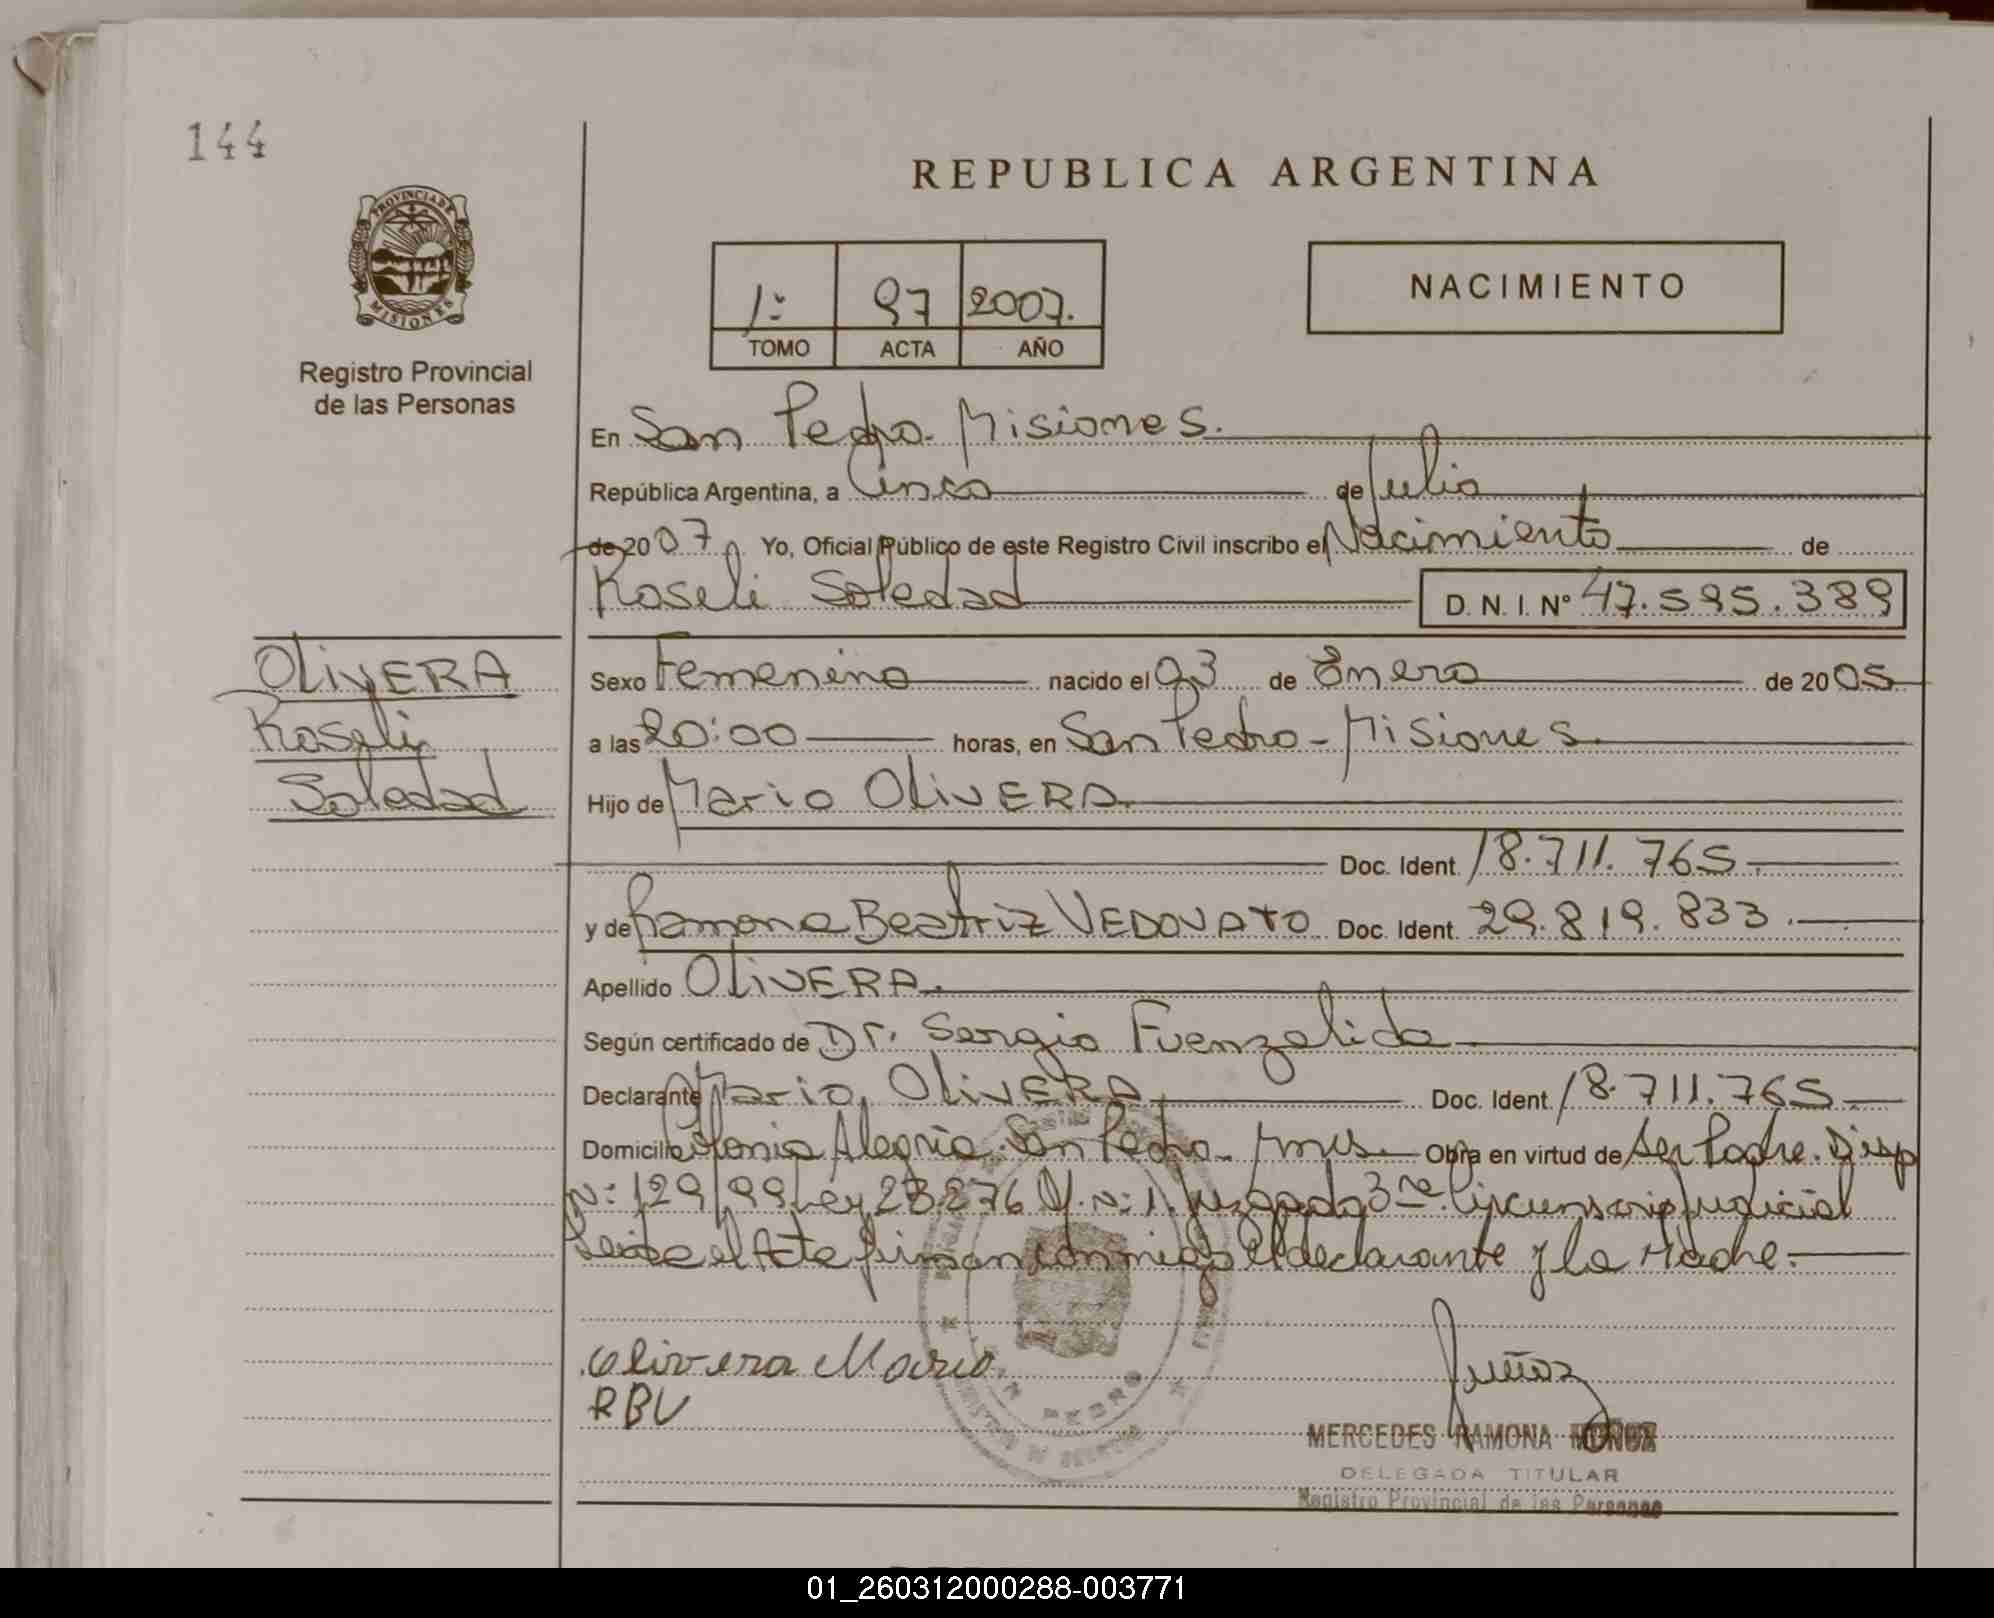 144
REPUBLICA ARGENTINA
PROVINCIA DE
MISIONES
Registro Provincial
de las Personas
1: 97 2007.
TOMO ACTA AÑO
NACIMIENTO
En San Pedro Misiones.
República Argentina, a Cinco de Julio
de 2007 Yo, Oficial Público de este Registro Civil inscribo el Nacimiento de
Roseli Soledad D. N. I. Nº 47.595.389
OLIVERA
Roseli
Soledad
Sexo Femenino nacido el 03 de Enero de 2005
a las 20:00 horas, en San Pedro - Misiones.
Hijo de Mario OLIVERA.
Doc. Ident. 18.711.765.
y de Ramona Beatriz VEDOVATO Doc. Ident. 29.819.833.
Apellido OLIVERA.
Según certificado de Dr. Sergio Fuenzalida
Declarante Mario OLIVERA Doc. Ident. 18.711.765
Domicilio Colonia Alegria. San Pedro. Mnes. Obra en virtud de ser Padre. Disp
Nº: 129/99 Ley 23.876 Nº: 1. Juzgado 3ra. Circunscrip Judicial
Leida el Acta firman conmigo el declarante y la Madre.
Olivera Mario
RBV
SAN PEDRO
Muñoz
MERCEDES RAMONA MUÑOZ
DELEGADA TITULAR
Registro Provincial de las Personas
01_260312000288-003771